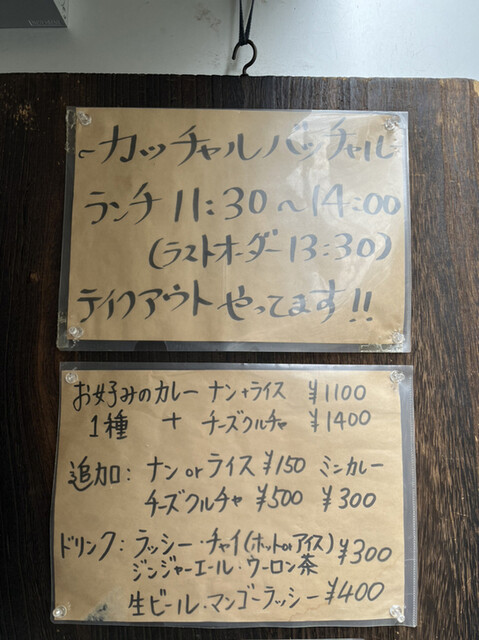 ~カッチャルバッチャル~
ランチ 11:30~14:00
(ラストオーダー 13:30)
テイクアウトやってます!!
お好みのカレー ナン+ライス ¥1100
1種 + チーズクルチャ ¥1400
追加: ナン or ライス ¥150 ミニカレー
チーズクルチャ ¥500 ¥300
ドリンク: ラッシー・チャイ(ホット or アイス) ¥300
ジンジャーエール・ウーロン茶
生ビール・マンゴーラッシー ¥400